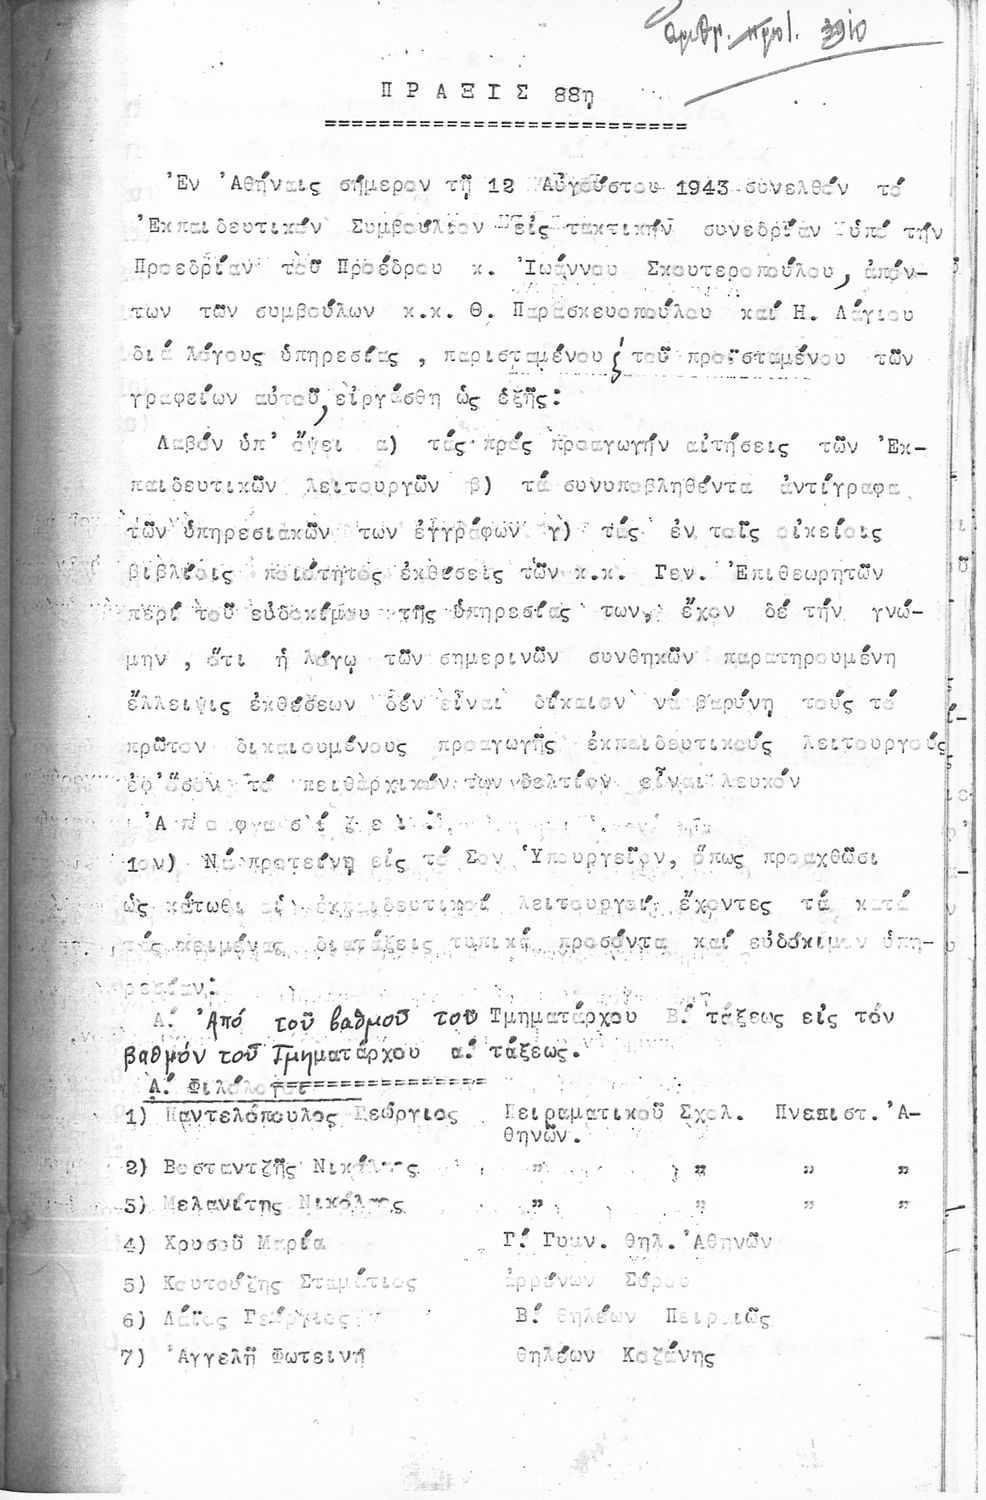 ἀριθ. πρωτ. 3910
ΠΡΑΞΙΣ 88η
Ἐν Ἀθήναις σήμερον τῇ 12 Αὐγούστου 1943 συνελθόν τό
Ἐκπαιδευτικόν Συμβούλιον εἰς τακτικήν συνεδρίαν ὑπό τήν
Προεδρίαν τοῦ Προέδρου κ. Ἰωάννου Σκουτεροπούλου, ἀπόν-
των τῶν συμβούλων κ.κ. Θ. Παρασκευοπούλου καί Η. Λάγιου
διά λόγους ὑπηρεσίας, παρισταμένου τοῦ προϊσταμένου τῶν
γραφείων αὐτοῦ, εἰργάσθη ὡς ἑξῆς:
Λαβόν ὑπ' ὄψει α) τάς πρός προαγωγήν αἰτήσεις τῶν Ἐκ-
παιδευτικῶν λειτουργῶν β) τά συνυποβληθέντα ἀντίγραφα
τῶν ὑπηρεσιακῶν των ἐγγράφων γ) τάς ἐν τοῖς οἰκείοις
βιβλίοις ποιότητος ἐκθέσεις τῶν κ.κ. Γεν. Ἐπιθεωρητῶν
περί τοῦ εὐδοκίμου τῆς ὑπηρεσίας των, ἔχον δέ τήν γνώ-
μην, ὅτι ἡ λόγῳ τῶν σημερινῶν συνθηκῶν παρατηρουμένη
ἔλλειψις ἐκθέσεων δέν εἶναι δίκαιον νά βαρύνῃ τούς τό
πρῶτον δικαιουμένους προαγωγῆς ἐκπαιδευτικούς λειτουργούς
ἐφ' ὅσον τό πειθαρχικόν των δελτίον εἶναι λευκόν
Ἀποφασίζει:
1ον) Νά προτείνῃ εἰς τό Σον Ὑπουργεῖον, ὅπως προαχθῶσι
ὡς κάτωθι οἱ ἐκπαιδευτικοί λειτουργοί, ἔχοντες τά κατά
τάς κειμένας διατάξεις τυπικά προσόντα καί εὐδόκιμον ὑπη-
ρεσίαν:
Α! Ἀπό τοῦ βαθμοῦ του Τμηματάρχου Β! τάξεως εἰς τόν
βαθμόν τοῦ Τμηματάρχου α! τάξεως.
Α! Φιλόλογοι
1) Παντελόπουλος Γεώργιος Πειραματικοῦ Σχολ. Πνεπιστ. Ἀ-
θηνῶν.
2) Βοσταντζῆς Νικόλαος " " " "
3) Μελανίτης Νικόλαος " " " "
4) Χρυσοῦ Μαρία Γ! Γυμν. θηλ. Ἀθηνῶν
5) Κουτούζης Σταμάτιος ἀρρένων Σύρου
6) Λάϊος Γεώργιος Β! θηλέων Πειραιῶς
7) Ἀγγελῆ Φωτεινή θηλέων Κοζάνης